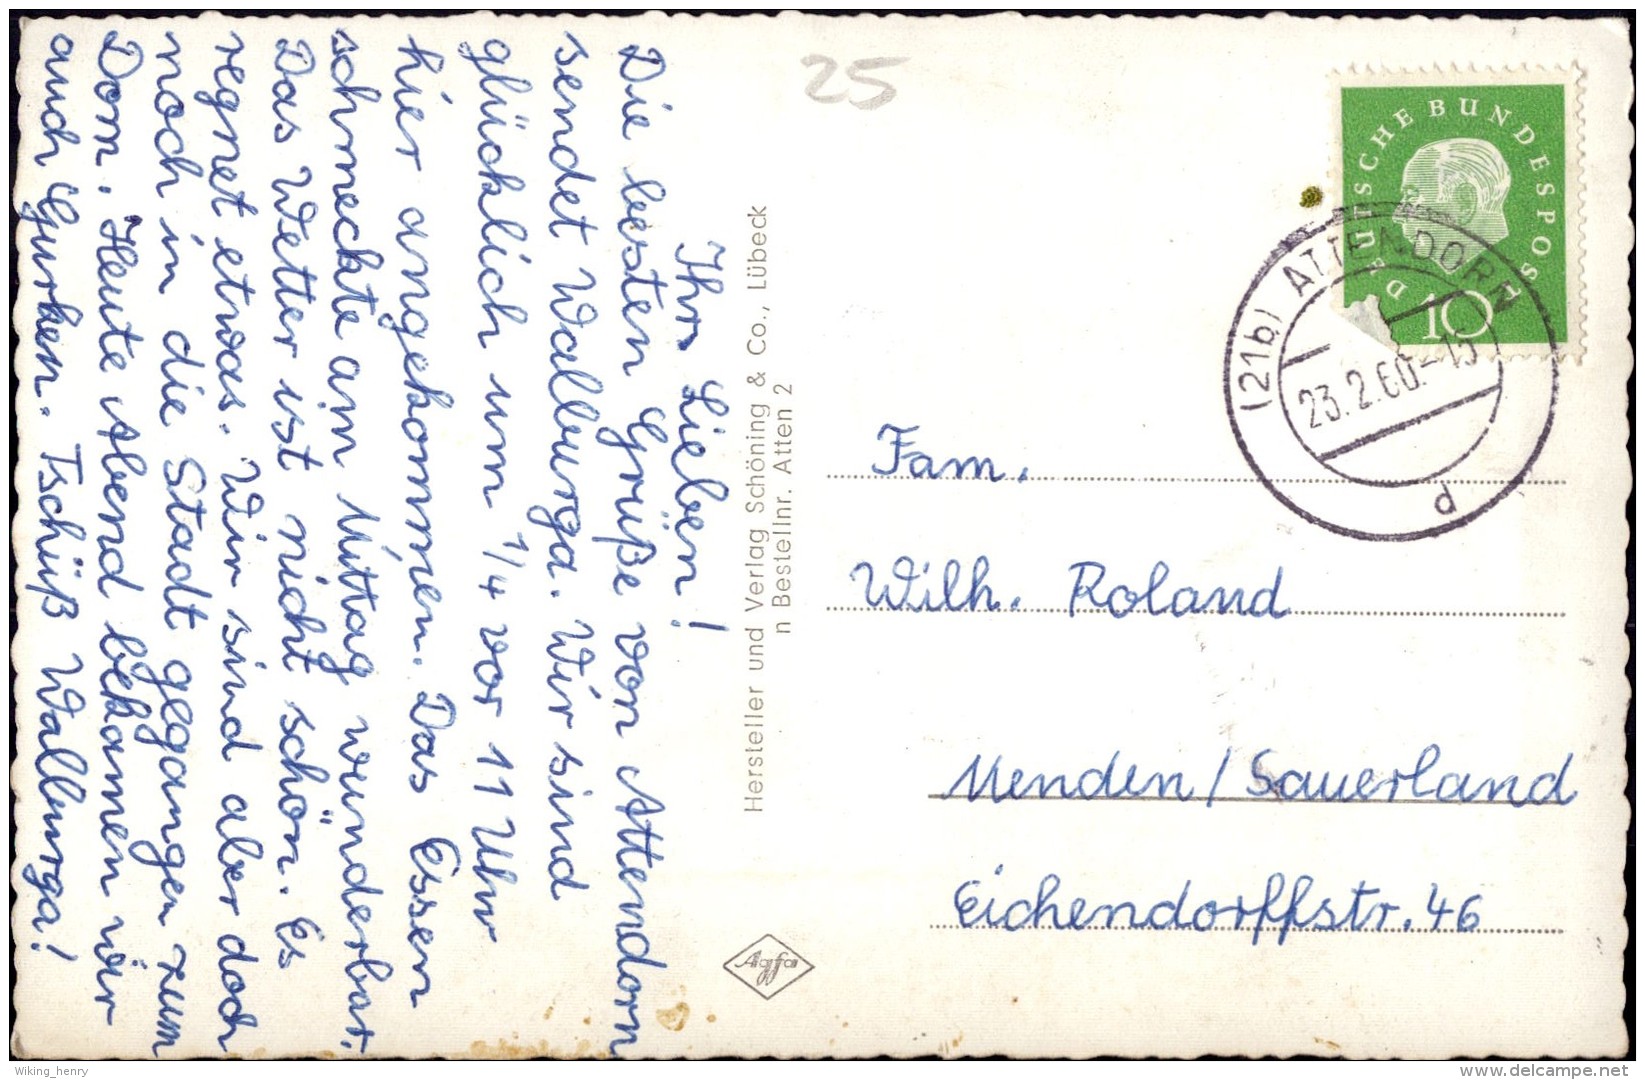 Ihr Lieben!
Die besten Grüße von Attendorn
sendet Walburga. Wir sind
glücklich um 1/4 vor 11 Uhr
hier angekommen. Das Essen
schmeckte am Mittag wunderbar.
Das Wetter ist nicht schön. Es
regnet etwas. Wir sind aber doch
noch in die Stadt gegangen zum
Dom. Heute Abend bekamen wir
auch Gurken. Tschüß Walburga!
Hersteller und Verlag Schöning & Co., Lübeck
n Bestellnr. Atten 2
Agfa
25
DEUTSCHE BUNDESPOST
10
(21b) ATTENDORN
23.2.60.-15
d
Fam.
Wilh. Roland
Menden/Sauerland
Eichendorffstr. 46
Wiking_henry
delcampe.net